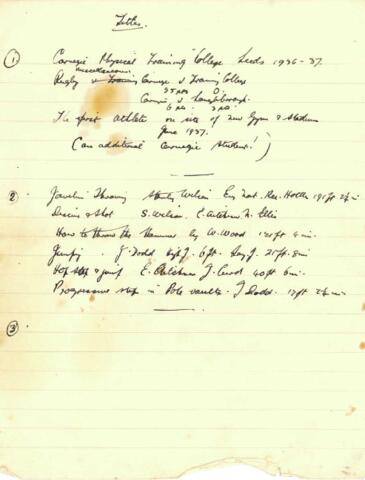 Titles.
① Carnegie Physical Training College Leeds 1936-37.
miscellaneous
Rugby v Training Carnegie v Training College
35 pts 0
Carnegie v Loughborough
6 pts 3 pts
The first athlete on site of New Gym & Stadium
June 1937.
(an additional Carnegie student!)
② Javelin Throwing Stanley Wilson Eng. Nat. Rec. Holder 191 ft
Discus & Shot S. Wilson. E. M. Ellis
How to throw the Hammer by W. Wood 121 ft
Jumping. J. Dodd High J. 6 ft. Long J. 21 ft. 8 in
Hop step & jump E. J. 40 ft 6 in.
Progressive step in Pole vault. J. Dodd. ft in
③